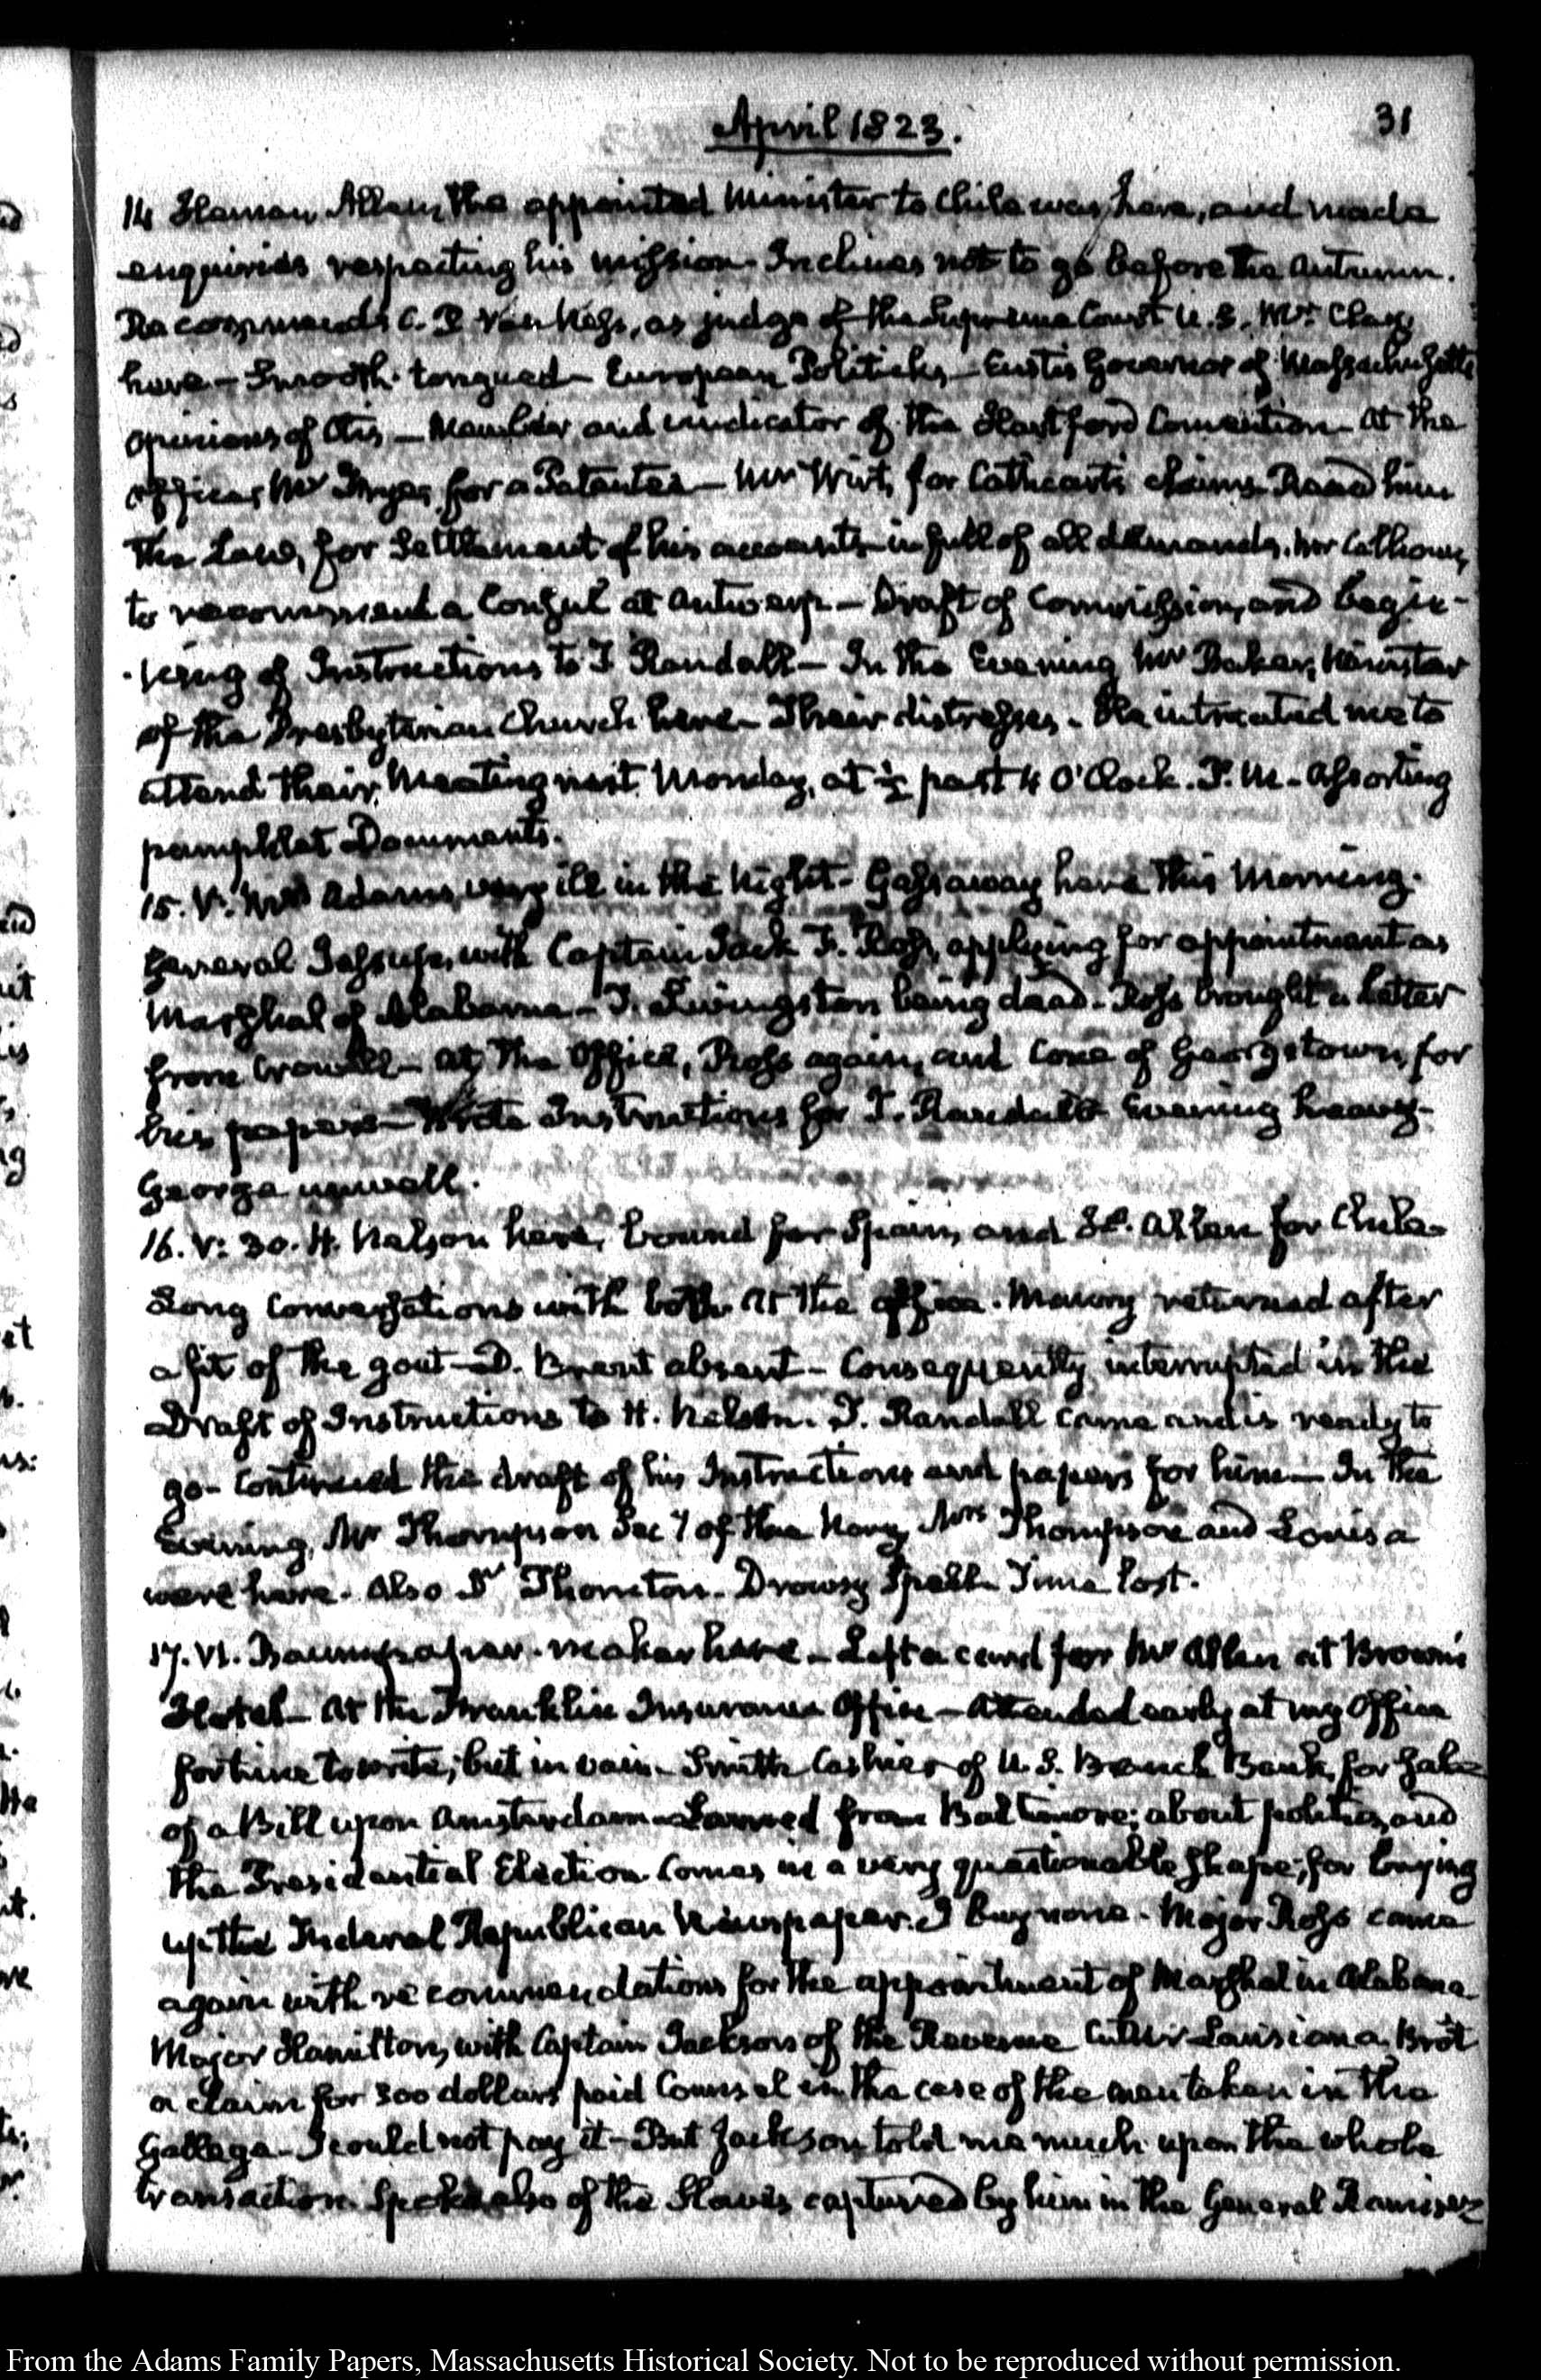 April 1823.
31
14 Heman Allen, the appointed Minister to Chile was here, and made
enquiries respecting his mission. Inclines not to go before the Autumn.
Recommends C. P. Van Ness, as judge of the Supreme Court U.S. Mr. Clay,
here— Smooth-tongued— European Politicks— Eustis Governor of Massachusetts
opinions of Otis— Member and vindicator of the Hartford Convention— At the
office, Mr for a Patentee— Mr Wirt, for Cathcart's claims. Read him
the Law, for Settlement of his accounts in full of all demands. Mr Calhoun,
to recommend a Consul at Antwerp— Draft of Commission, and begin-
-ning of Instructions to T. Randall— In the Evening Mr Baker, Minister
of the Presbyterian Church here— Their distresses. He intreated me to
attend their Meeting next Monday, at ½ past 4 O'Clock. P.M— Assorting
pamphlet Documents.
15. V. Mrs Adams, very ill in the Night— Gassaway here this Morning.
General Jessup, with Captain Jack F. Ross, applying for appointment as
Marshal of Alabama— T. Livingston being dead— Ross brought a letter
from Crowell— At the Office, Ross again, and Cone of Georgetown, for
his papers— Wrote Instructions for T. Randall— Evening heavy—
George unwell.
16. V: 30. H. Nelson here, bound for Spain, and Hn. Allen for Chile—
Long Conversations with both. At the office. Maury returned after
a fit of the gout— D. Brent absent— Consequently interrupted in the
Draft of Instructions to H. Nelson. T. Randall came and is ready to
go— Continued the draft of his Instructions and papers for him— In the
Evening, Mr Thompson Secy of the Navy, Mrs Thompson and Louisa
were here. Also Dr Thornton. Drowsy Spell. Time lost.
17. VI. paper-maker here— Left a card for Mr Allen at Brown's
Hotel— At the Franklin Insurance Office— Attended early at my Office
for time to write; but in vain— Smith Cashier of U.S. Branch Bank, for sale
of a Bill upon Amsterdam— from Baltimore; about politics, and
the Presidential Election. Comes in a very questionable shape; for buying
up the Federal Republican Newspaper. I buy none. Major Ross came
again with recommendations for the appointment of Marshal in Alabama
Major Hamilton, with Captain Jackson of the Revenue Cutter Louisiana, Brot
a claim for 300 dollars paid Counsel in the case of the men taken in the
Gallega— I could not pay it— But Jackson told me much upon the whole
transaction. Spoke also of the Slaves captured by him in the General Ramirez
From the Adams Family Papers, Massachusetts Historical Society. Not to be reproduced without permission.